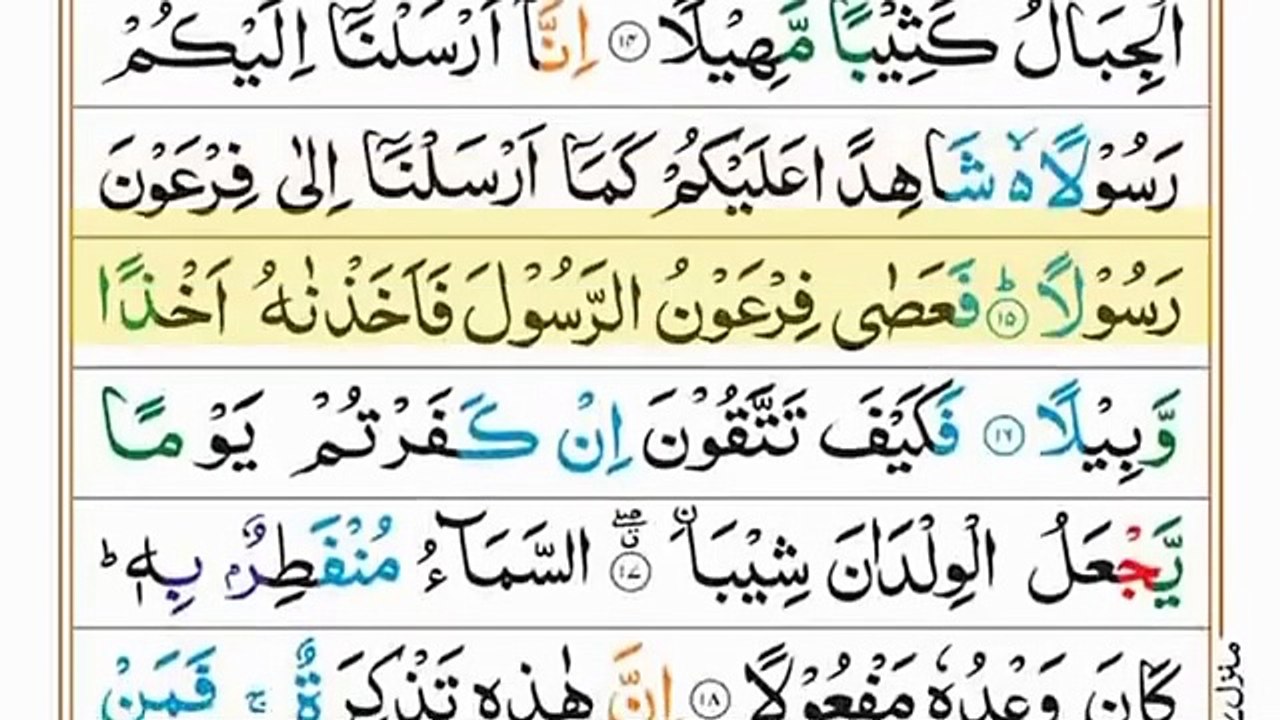 الْجِبَالُ كَثِيْبًا مَّهِيْلًا ۝۱۴ اِنَّاۤ اَرْسَلْنَاۤ اِلَيْكُمْ
رَسُوْلًا ۵ۙ شَاهِدًا عَلَيْكُمْ كَمَاۤ اَرْسَلْنَاۤ اِلٰى فِرْعَوْنَ
رَسُوْلًا ؕ۝۱۵ فَعَصٰى فِرْعَوْنُ الرَّسُوْلَ فَاَخَذْنٰهُ اَخْذًا
وَّبِيْلًا ۝۱۶ فَكَيْفَ تَتَّقُوْنَ اِنْ كَفَرْتُمْ يَوْمًا
يَّجْعَلُ الْوِلْدَانَ شِيْبَا ۝۱۷ السَّمَآءُ مُنْفَطِرٌۢ بِهٖ ؕ
كَانَ وَعْدُهٗ مَفْعُوْلًا ۝۱۸ اِنَّ هٰذِهٖ تَذْكِرَةٌ ۚ فَمَنْ